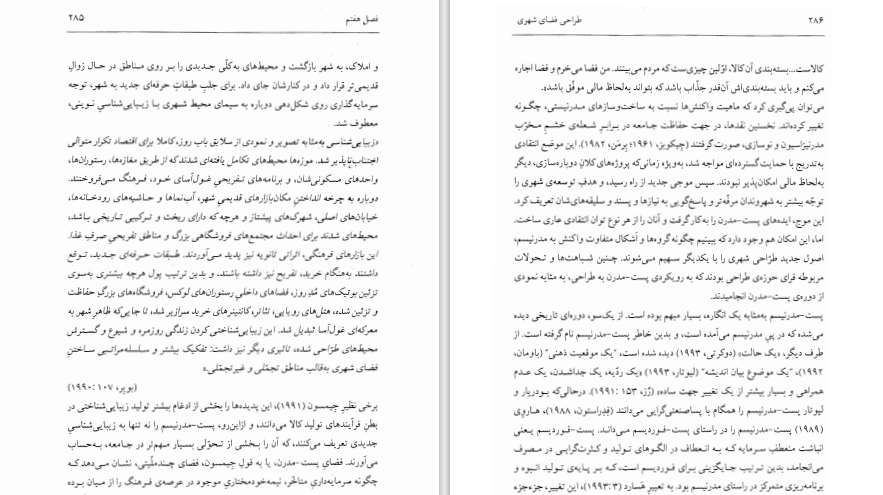 فصل هفتم ۲۸۵
و املاک، به شهر بازگشت و محیط‌های به‌کلّی جدیدی را بر روی مناطق در حال زوالِ
قدیمی‌تر قرار داد و در کنارشان جای داد. برای جلبِ طبقاتِ حرفه‌ای جدید به شهر، توجه
سرمایه‌گذاری روی شکل‌دهی دوباره به سیمای محیط شهری با زیبایی‌شناسیِ نوینی،
معطوف شد.
«زیبایی‌شناسی به‌مثابه تصویر و نمودی از سلایق باب روز، کاملا برای اقتصاد تکرار متوالی
اجتناب‌ناپذیر شد. موزه‌ها محیط‌های تکامل یافته‌ای شدند که از طریق مغازه‌ها، رستوران‌ها،
واحدهای مسکونی‌شان، و برنامه‌های تفریحیِ غول‌آسای خود، فرهنگ می‌فروختند.
دوباره به چرخه انداختنِ مکان‌بازارهای قدیمی شهر، آب‌نماها و حاشیه‌های رودخانه‌ها،
خیابان‌های اصلی، شهرک‌های پیشتاز و هرچه که دارای ریخت و ترکیبی تاریخی باشد،
محیط‌های شدند برای احداث مجتمع‌های فروشگاهی بزرگ و مناطق تفریحیِ صرفِ غذا.
این بازارهای فرهنگی، اثراتی ثانویه نیز پدید می‌آوردند. طبقات حرفه‌ای جدید، توقع
داشتند به‌هنگام خرید، تفریح نیز داشته باشند، و بدین ترتیب پول هرچه بیشتری به‌سوی
تزئین بوتیک‌های مُدِ روز، فضاهای داخلیِ رستوران‌های لوکس، فروشگاه‌های بزرگِ حفاظت
و تزئین شده، هتل‌های رویایی، تئاتر، کانتینرهای خرید سرازیر شد، تا جایی‌که ظاهرِ شهر به
معرکه‌ای غول‌آسا تبدیل شد. این زیبایی‌شناختی‌کردن زندگی روزمره و شیوع و گسترش
محیط‌های طرّاحی شده، تاثیری دیگر نیز داشت: تفکیک بیشتر و سلسله‌مراتبیِ ساختنِ
فضای شهری به‌قالب مناطق تجمّلی و غیرتجمّلی.»
(بویِر، ۱۰۷ :۱۹۹۰)
برخی نظیرِ جِیمسون (۱۹۹۱)، این پدیده‌ها را بخشی از ادغام بیشتر تولید زیبایی‌شناختی در
بطنِ فرآیندهای تولید کالا می‌دانند، و ازاین‌رو، پست-مدرنیسم را نه تنها به زیبایی‌شناسیِ
جدیدی تعریف می‌کنند، که آن را بخشی از تحوّلی بسیار مهم‌تر در جامعه، به‌حساب
می‌آورند. فضایِ پست-مدرن، یا به قولِ جِیمسون، فضای چندملّیتی، نشان می‌دهد که
چگونه سرمایه‌داریِ متاخّر، نیمه‌خودمختاریِ موجود در عرصه‌ی فرهنگ را از میان برده
۲۸۶ طراحی فضای شهری
کالاست...بسته‌بندی آن کالا، اوّلین چیزی‌ست که مردم می‌بینند. من فضا می‌خرم و فضا اجاره
می‌کنم و باید بسته‌بندی‌اش آن‌قدر جذّاب باشد که بتواند به‌لحاظ مالی موفّق باشد».
می‌توان پی‌گیری کرد که ماهیت واکنش‌ها نسبت به ساخت‌وسازهای مدرنیستی، چگونه
تغییر کرده‌اند. نخستین نقدها، در جهت حفاظت جامعه در برابرِ شعله‌ی خشم مخرّب
مدرنیزاسیون و نوسازی، صورت گرفتند (جیکوبز، ۱۹۶۱؛ بِرمَن، ۱۹۸۲). این موضع انتقادی
به‌تدریج با حمایت گسترده‌ای مواجه شد، به‌ویژه زمانی‌که پروژه‌های کلان دوباره‌سازی، دیگر
به‌لحاظ مالی امکان‌پذیر نبودند. سپس موجی جدید از راه رسید، و هدفِ توسعه‌ی شهری را
توجّه بیشتر به شهروندان مرفّه‌تر و پاسخ‌گویی به نیازها و پسند و سلیقه‌های‌شان تعریف کرد.
این موج، ایده‌های پست-مدرن را به‌کار گرفت و آنان را از هر نوع توان انتقادی عاری ساخت.
اما، این امکان هم وجود دارد که ببینیم چگونه گروه‌ها و اَشکال متفاوت واکنش به مدرنیسم،
اصول جدید طرّاحی شهری را با یکدیگر سهیم می‌شوند. چنین شباهت‌ها و تحولات
مربوطه فرای حوزه‌ی طراحی بودند که به رویکردی پست-مدرن به طراحی، به مثابه نمودی
از دوره‌ی پست-مدرن انجامیدند.
پست-مدرنیسم به‌مثابه یک انگاره، بسیار مبهم بوده است. از یک‌سو، دوره‌ای تاریخی دیده
می‌شده که در پیِ مدرنیسم می‌آمده است، و بدین خاطر پست-مدرنیسم نام گرفته است. از
طرف دیگر، «یک حالت» (دوکرتی، ۱۹۹۳) دیده شده است، "یک موقعیت ذهنی" (باومان،
۱۹۹۲)، "یک موضوعِ بیان اندیشه" (لیوتار، ۱۹۹۳) «یک ردّیه، یک جداشدن، یک عدم
همراهی و بسیار بیشتر از یک تغییر جهت ساده» (رُز، ۱۵۳ :۱۹۹۱). درحالی‌که بودریار و
لیوتار پست-مدرنیسم را همگام با پساصنعتی‌گرایی می‌دانند (فِدِراستون، ۱۹۸۸)، هارْوی
(۱۹۸۹) پست-مدرنیسم را در راستای پست-فوردیسم می‌داند. پست-فوردیسم یعنی
انباشت منعطفِ سرمایه که به انعطاف در الگوهای تولید و کثرت‌گرایی در مصرف
می‌انجامد، بدین ترتیب جایگزینی برای فوردیسم است، که بر پایه‌ی تولید انبوه و
برنامه‌ریزی متمرکز در راستای مدرنیسم بود. به تعبیرِ هَسارد (۳ :۱۹۹۳)، این تغییر، جزءجزء